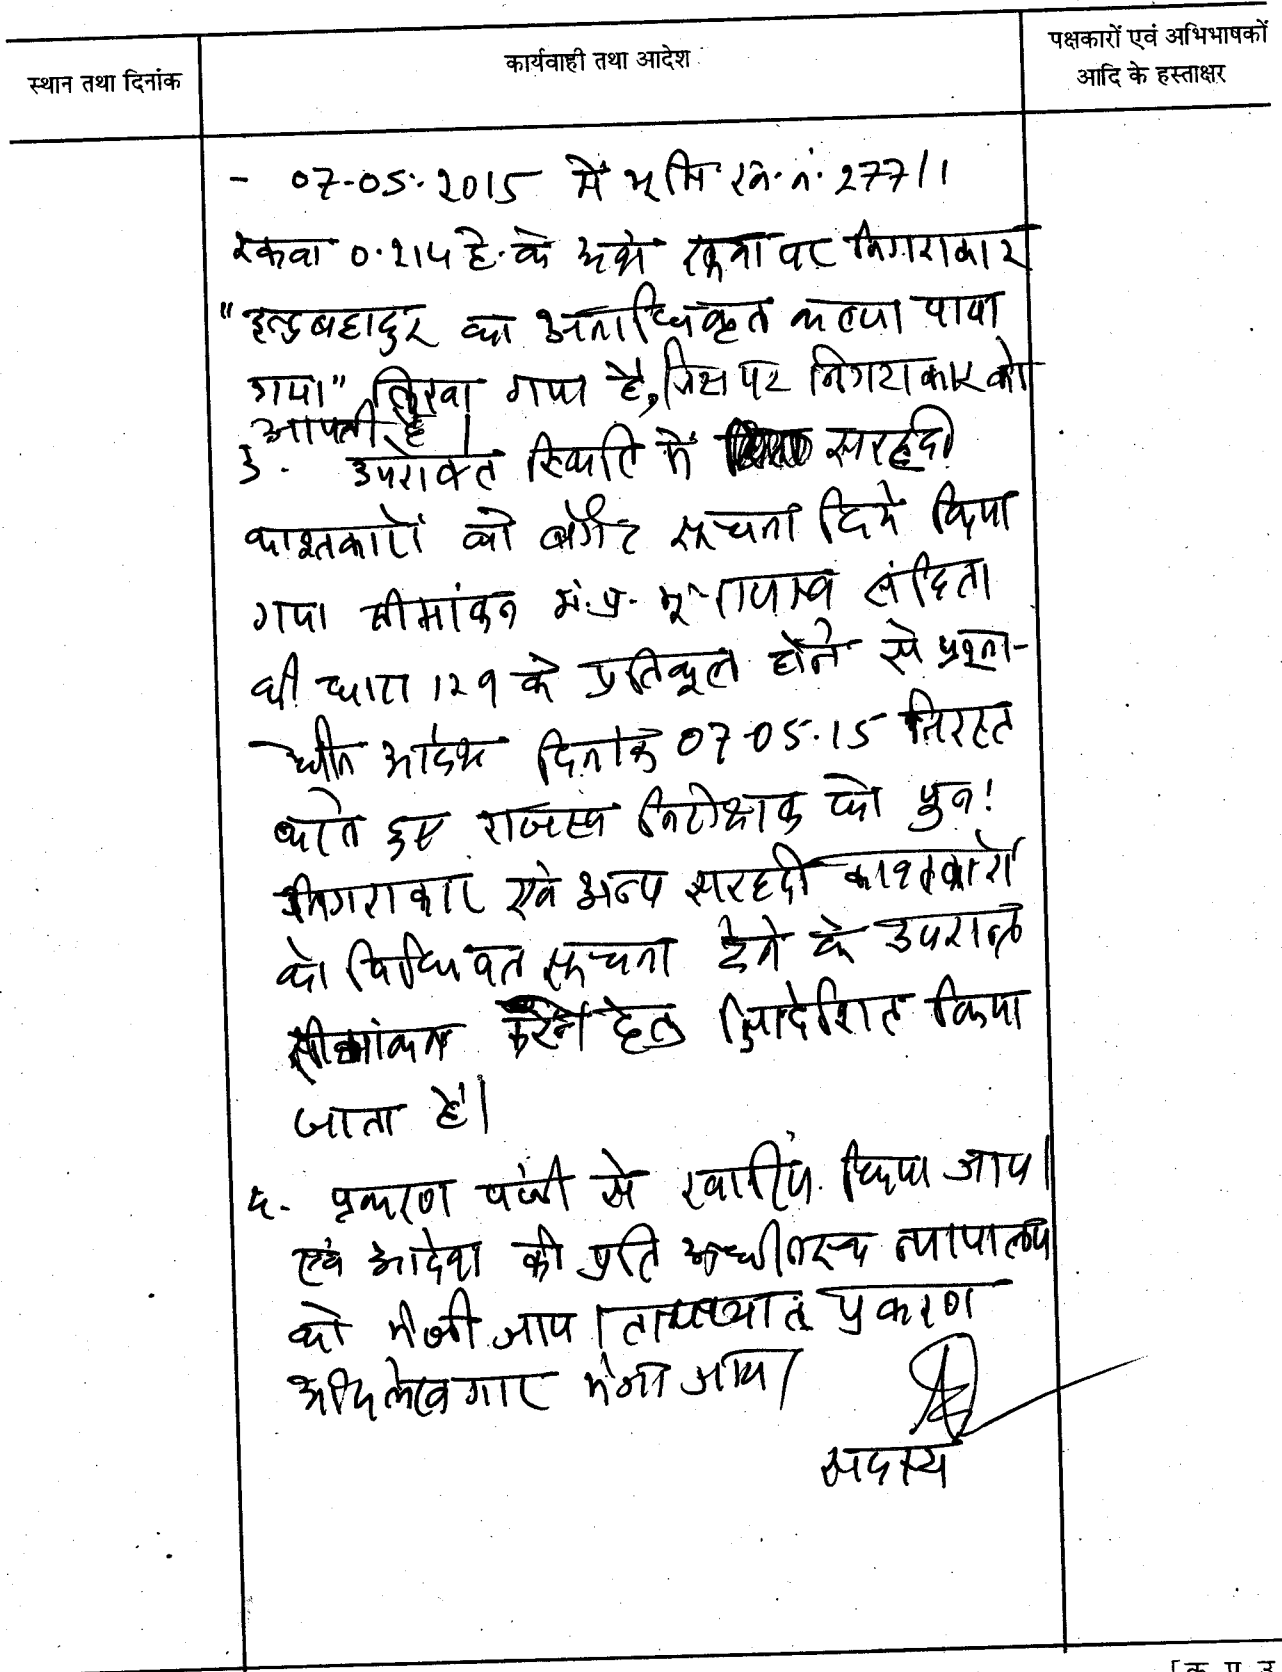 स्थान तथा दिनांक
कार्यवाही तथा आदेश
पक्षकारों एवं अभिभाषकों
आदि के हस्ताक्षर
- 07-05-2015 में भूमि ख.नं. 277/1
रकवा 0.214 हे. के अंश रकवा पर निगराकार
"इन्द्रबहादुर का अनाधिकृत कब्जा पाया
गया" लिखा गया है, जिस पर निगराकार को
आपत्ती है।
उपरोक्त स्थिति में सरहदी
काश्तकारों को बगैर सूचना दिये किया
गया सीमांकन म.प्र. भू-राजस्व संहिता
की धारा 129 के प्रतिकूल होने से प्रश्ना-
धीन आदेश दिनांक 07-05-15 निरस्त
करते हुए राजस्व निरीक्षक को पुन:
निगराकार एवं अन्य सरहदी काश्तकारों
को विधिवत सूचना देने के उपरान्त
सीमांकन करने हेतु आदेशित किया
जाता है।
प्रकरण पंजी से खारिज किया जाय।
एवं आदेश की प्रति अधीनस्थ न्यायालय
को भेजी जाय। तत्पश्चात् प्रकरण
अभिलेखागार भेजा जाय।
सदस्य